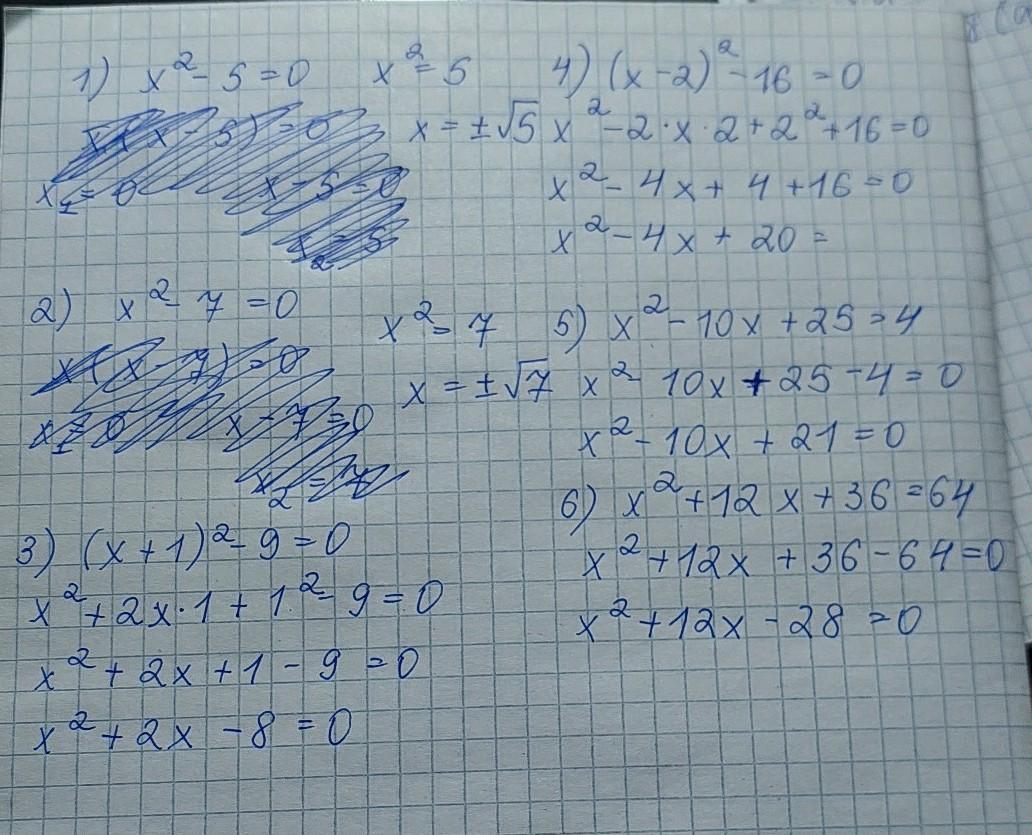 1) x² - 5 = 0
x² = 5
x = ±√5
x(x - 5) = 0
x₁ = 0
x - 5 = 0
x₂ = 5
2) x² - 7 = 0
x² = 7
x = ±√7
x(x - 7) = 0
x₁ = 0
x - 7 = 0
x₂ = 7
3) (x + 1)² - 9 = 0
x² + 2x · 1 + 1² - 9 = 0
x² + 2x + 1 - 9 = 0
x² + 2x - 8 = 0
4) (x - 2)² - 16 = 0
x² - 2 · x · 2 + 2² + 16 = 0
x² - 4x + 4 + 16 = 0
x² - 4x + 20 =
5) x² - 10x + 25 = 4
x² - 10x + 25 - 4 = 0
x² - 10x + 21 = 0
6) x² + 12x + 36 = 64
x² + 12x + 36 - 64 = 0
x² + 12x - 28 = 0